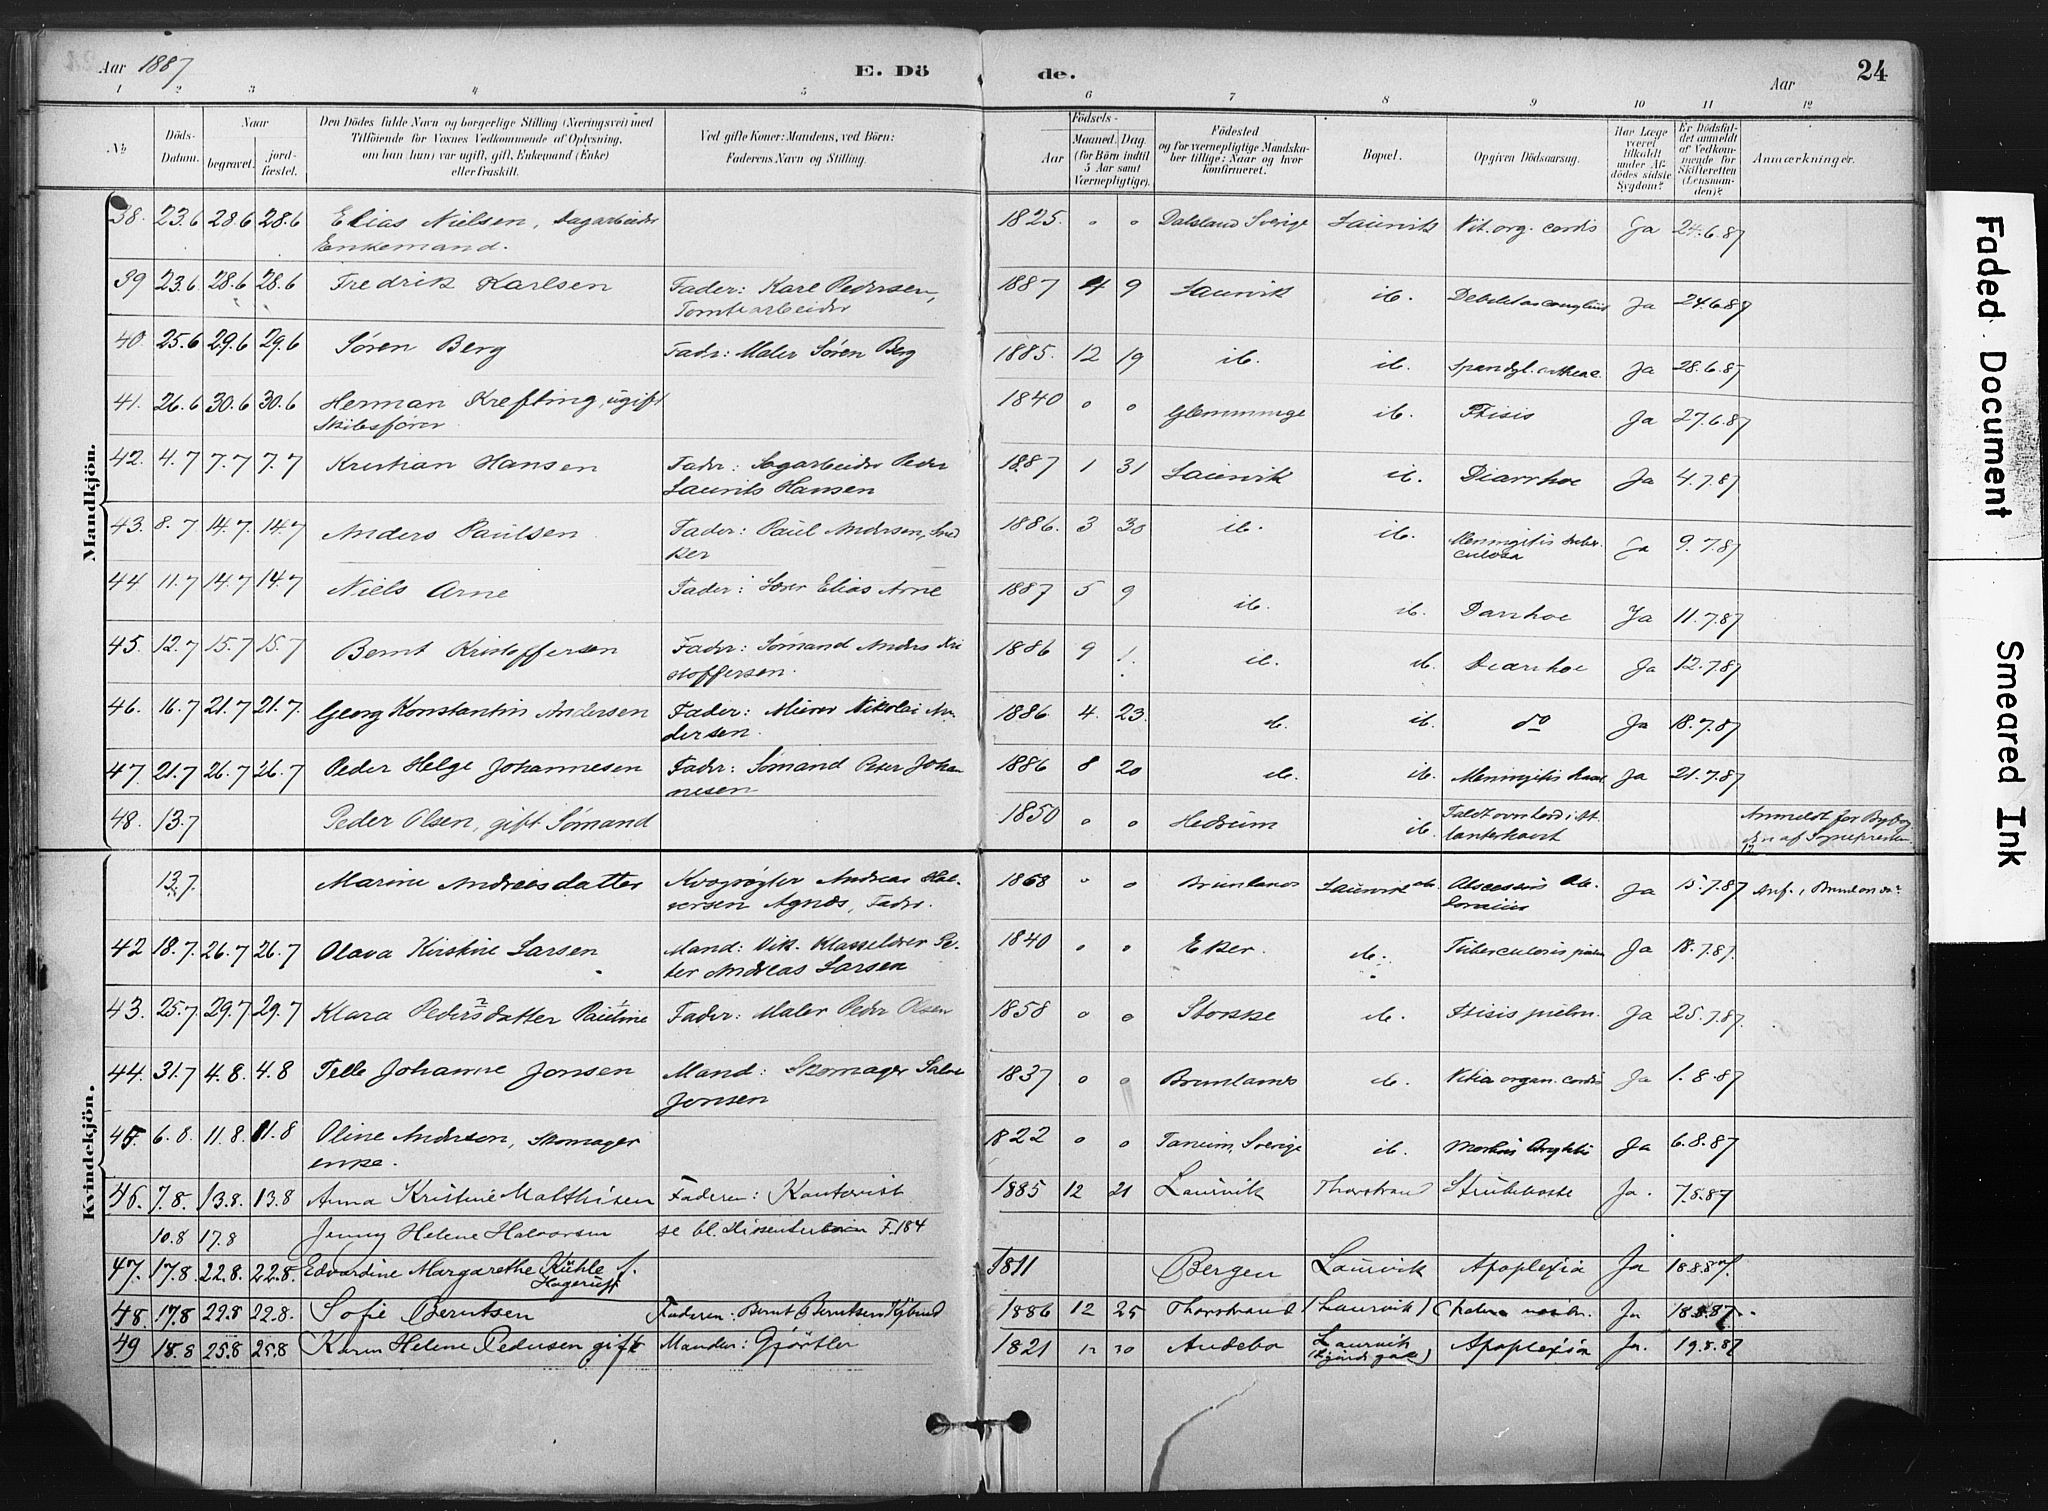 Aar 1887 E. Dö de. Aar 24
1 2 3 4 5 6 7 8 9 10 11 12
№ Döds-Datum. Naar begravet. jordfæstet. Den Dödes fulde Navn og borgerlige Stilling (Næringsvei) med Tilföiende for Voxnes Vedkommende af Oplysning, om han (hun) var ugift, gift, Enkemand (Enke) eller fraskilt. Ved gifte Koner: Mandens, ved Börn: Faderens Navn og Stilling. Födsels- Aar Maaned. Dag. (for Börn indtil 5 Aar samt Værnepligtige). Födested og for værnepligtige Mandskaber tillige: Naar og hvor konfirmeret. Bopæl. Opgiven Dödsaarsag. Har Læge været tilkaldt under Afdödes sidste Sygdom? Er Dödsfaldet anmeldt af Vedkommende for Skifteretten (Lensmanden)? Anmærkninger.
Mandkjön.
38. 23.6 28.6 28.6 Elias Nielsen, Dagarbeider 1825. o o Dalsland Sverige Laurvik Vit. org. cordis Ja 24.6.87
Enkemand.
39 23.6 28.6 28.6 Fredrik Karlsen Fader: Karl Pedersen, 1887 4 9 Laurvik ib. Ja 24.6.87
Tomtearbeider
40. 25.6 29.6 29.6 Søren Berg Fader: Maler Søren Berg 1885. 12 19 ib. ib. Ja 28.6.87
41. 26.6 30.6 30.6 Herman Krefting, ugift 1840 o o Glemminge ib. Ftisis Ja 27.6.87
Skibsfører
42. 4.7 7.7 7.7 Kristian Hansen Fader: Sagarbeider Peder 1887 1 31 Laurvik ib. Diarrhoe Ja 4.7.87
Laurits Hansen
43. 8.7 14.7. 14.7 Anders Paulsen Fader: Paul Andersen, Sned 1886. 3 30 ib. ib. Meningitis tuber- Ja 9.7.87
ker culosa
44 11.7 14.7 14.7 Niels Arne Fader: Elias Arne 1887 5 9 ib. ib. Diarrhoe Ja 11.7.87
45. 12.7 15.7 15.7 Bernt Kristoffersen Fader: Sømand Anders Kri 1886 9 1. ib. ib. Diarrhoe Ja 12.7.87
stoffersen.
46. 16.7 21.7 21.7. Georg Konstantin Andersen Fader: Murer Nikolai An 1886. 4. 23. ib. ib. do Ja 18.7.87
dersen.
47. 21.7 26.7 26.7 Peder Helge Johannesen Fader: Sømand Peter Johan 1886 8 20 ib. ib. Meningitis Ja 21.7.87
nesen
48. 13.7 Peder Olsen, gift Sømand 1850 o o Hedrum ib. Faldt overbord i Anmeldt for
af Sognepresten
Kvindekjön.
13.7. Marine Andreasdatter Andreas Hal- 1868 o o Brunlanes Laurvik Abscessus Ja 15.7.87
versen Agnes, Fader.
42 18.7. 26.7 26.7 Olava Kirstine Larsen Mand: Vik. Klasselærer Pe- 1840 o o Eker. ib. Tuberculosis pulm Ja 18.7.87.
ter Andreas Larsen
43. 25.7 29.7 29.7 Klara Pedersdatter Pauline Fader: Maler Peder Olsen 1858 o o Storske ib. Ftisis pulm. Ja 25.7.87.
44. 31.7 4.8. 4.8 Telle Johanne Jonsen Mand: Skomager 1837 o o Brunlanes ib. Vitia organ. cordis Ja 1.8.87
Jonsen
45. 6.8. 11.8. 11.8 Oline Andersen, Skomager 1822 o o Tanum, Sverige ib. Morbus Brightii Ja 6.8.87
enke.
46. 7.8. 13.8. 13.8 Anna Kristine Mathisen Faderen: Kontorist 1885 12 21 Laurvik Thorstrand Strubehoste Ja. 7.8.87
10.8 17.8 Jenny Helene Halvorsen se bl. Dissenterbörn F. 184
47. 17.8 22.8. 22.8. Edvardine Margarethe Kühle f. 1811 Bergen Laurvik Apoplexia Ja 18.8.87.
Hagerup
48. 17.8 22.8 22.8. Sofie Berntsen Faderen: Bernt Berntsen 1886 12 25 Thorstrand (Laurvik) Ja 18.8.87.
49 18.8 25.8 25.8 Karen Helene Pedersen gift Manden: Gjörtler 1821 12 30 Andebo Laurvik Apoplexia Ja. 19.8.87
Faded Document
Smeared Ink